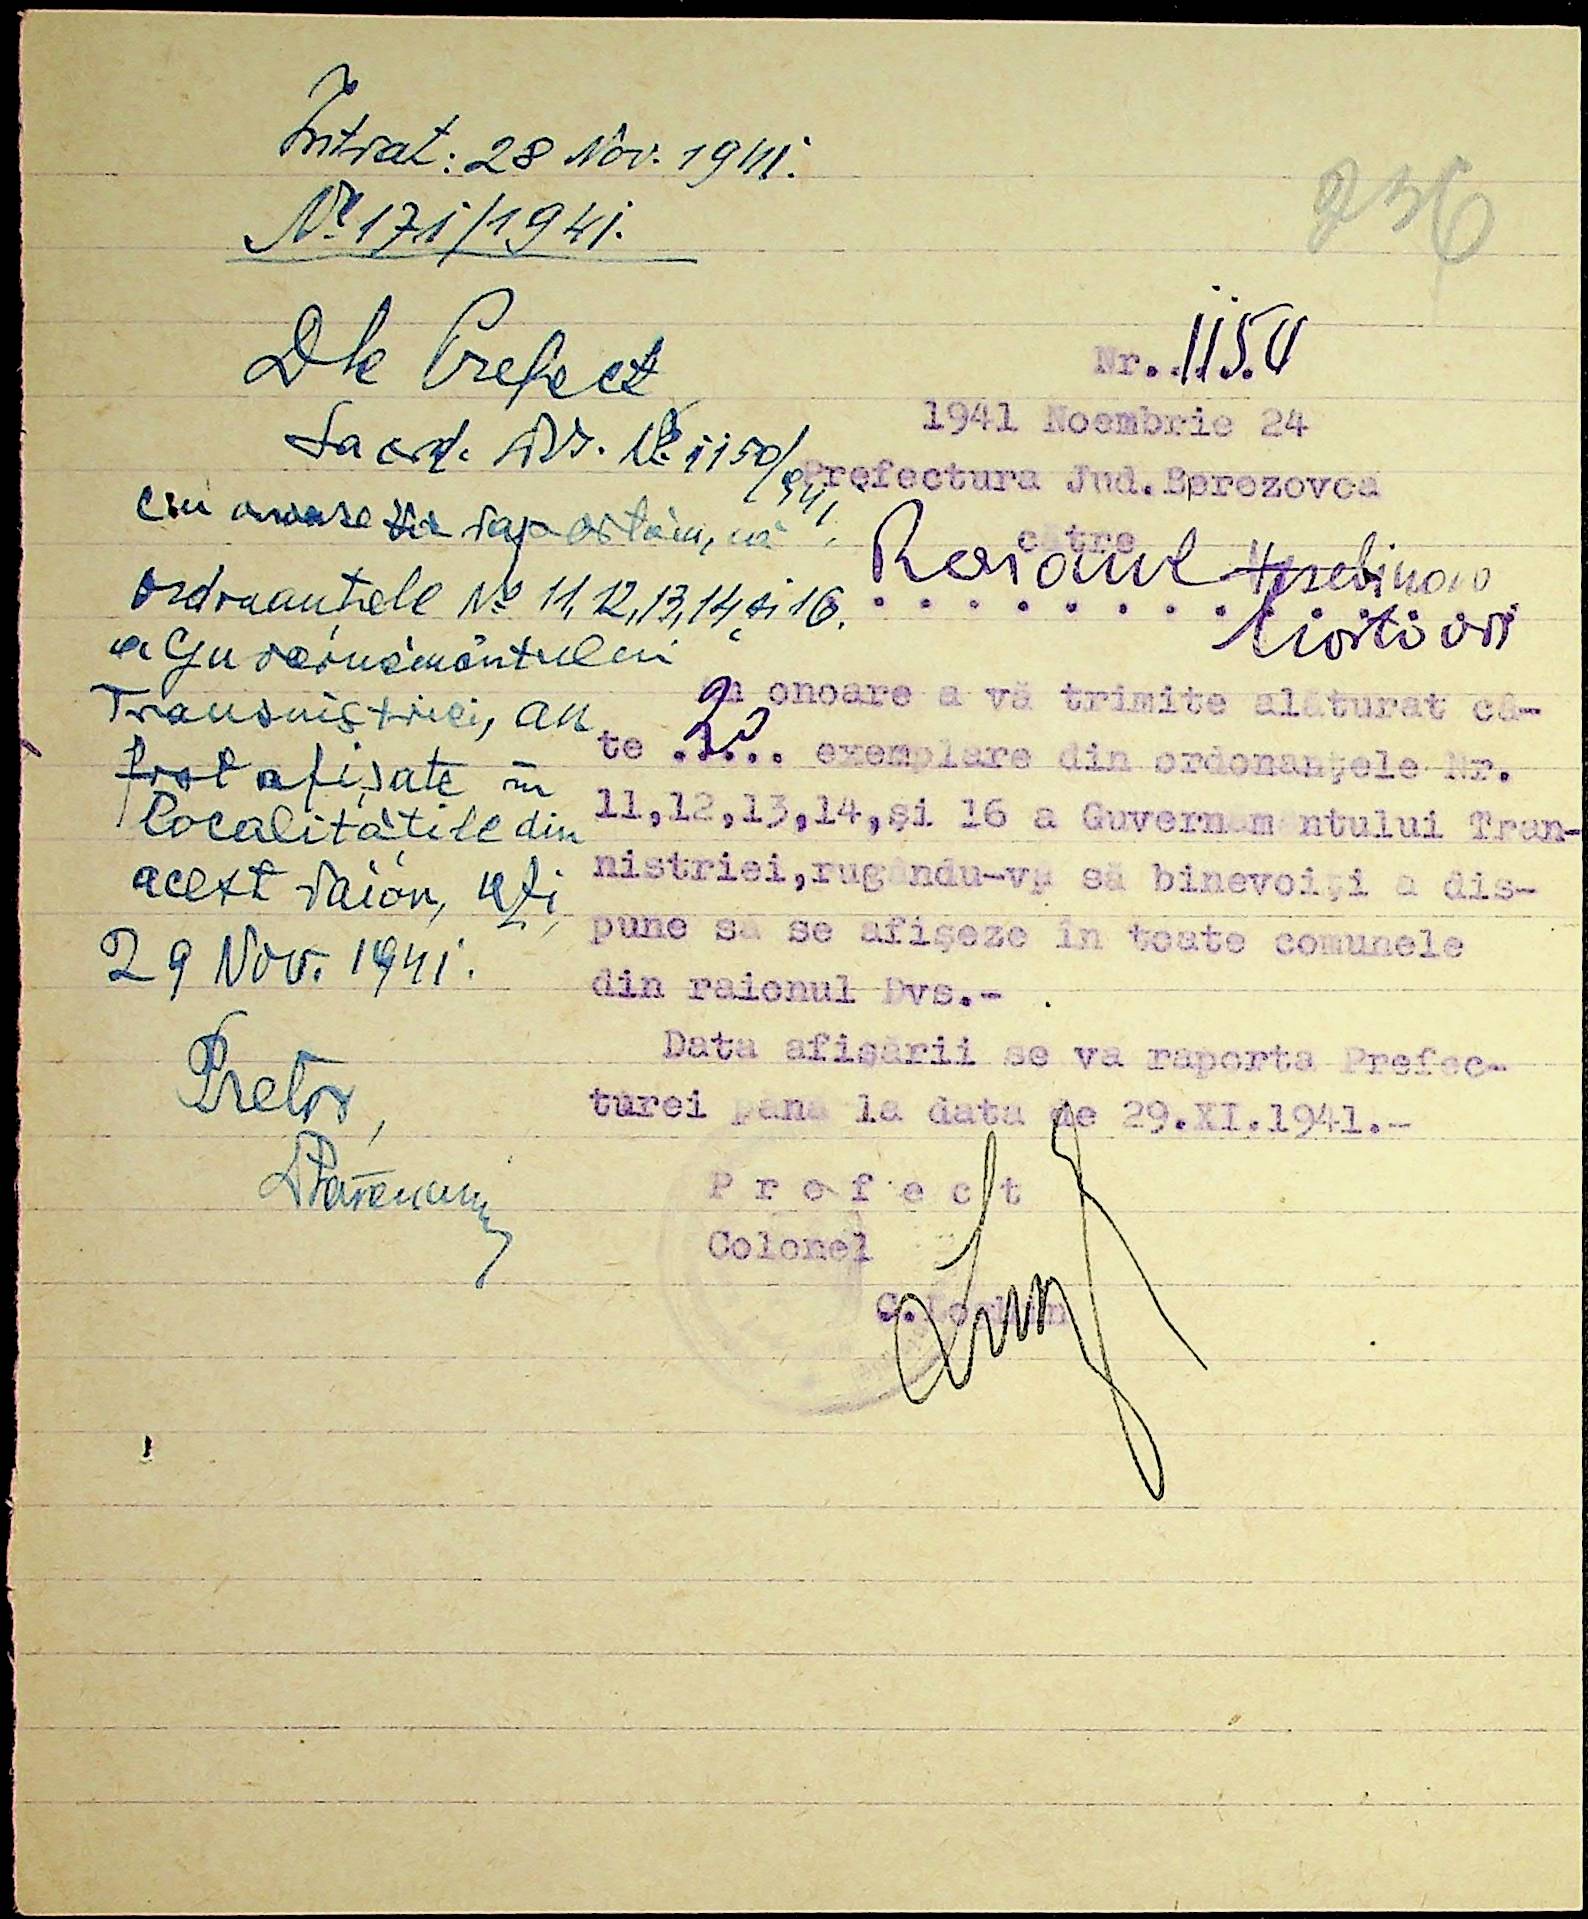 Intrat: 28 Nov. 1941.
№ 171/1941.
236
Dle Prefect
La ord. Dvs. № 1150/941,
cu onoare vă raportăm, că
ordonanțele № 11, 12, 13, 14, și 16.
a Guvernământului
Transnistriei, au
fost afișate în
localitățile din
acest raion, azi,
29 Nov. 1941.
Pretor,
Nr. 1150
1941 Noembrie 24
Prefectura Jud. Berezovca
către
Raionul
Am onoare a vă trimite alăturat câ-
te ..... exemplare din ordonanțele Nr.
11,12,13,14,și 16 a Guvernamântului Tran-
nistriei,rugându-vă să binevoiți a dis-
pune să se afișeze în toate comunele
din raionul Dvs.-
Data afișării se va raporta Prefec-
turei pana la data de 29.XI.1941.-
P r e f e c t
Colonel
C.Loghin